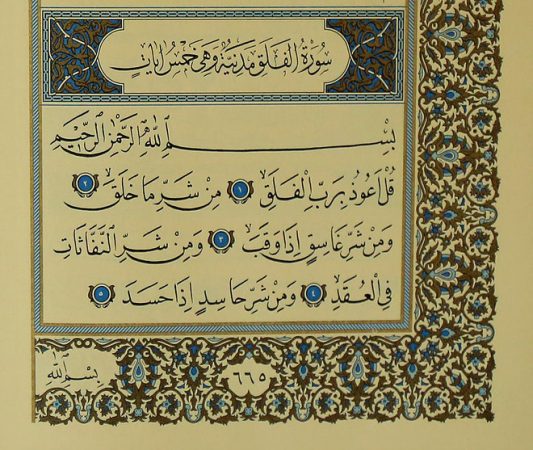 سُورَةُ الْفَلَقِ مَدَنِيَّةٌ وَهِيَ خَمْسُ اٰيَاتٍ
بِسْمِ اللّٰهِ الرَّحْمٰنِ الرَّحِيمِ
قُلْ اَعُوذُ بِرَبِّ الْفَلَقِ ١ مِنْ شَرِّ مَا خَلَقَ ٢
وَمِنْ شَرِّ غَاسِقٍ اِذَا وَقَبَ ٣ وَمِنْ شَرِّ النَّفَّاثَاتِ
فِي الْعُقَدِ ٤ وَمِنْ شَرِّ حَاسِدٍ اِذَا حَسَدَ ٥
٦٦٥
بِسْمِ اللّٰهِ